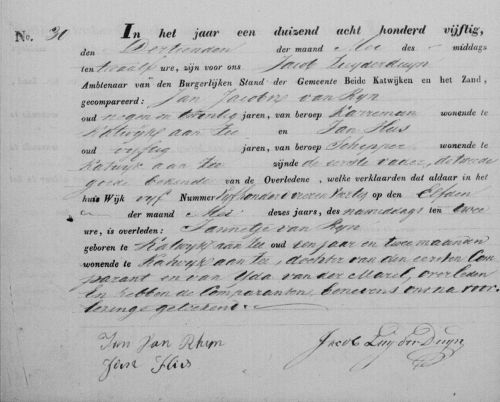 No. 31 In het jaar een duizend acht honderd vijftig,
den Dertienden der maand Mei des middags
ten twaalf ure, zijn voor ons Jacob Luyderduyn
Ambtenaar van den Burgerlijken Stand der Gemeente Beide Katwijken en het Zand,
gecompareerd: Jan Jacobsz van Ryn
oud negen en twintig jaren, van beroep Karreman wonende te
Katwijk aan Zee en Jan Hus
oud vyftig jaren, van beroep Schepper wonende te
Katwyk aan Zee zijnde de eerste vader, de tweede
goede bekende van de Overledene, welke verklaarden dat aldaar in het
huis Wijk vyf Nummer Vyfhonderd op den Elfden
der maand Mei dezes jaars, des namiddags ten twee
ure, is overleden: Jannetje van Ryn
geboren te Katwyk aan Zee oud een jaar en twee maanden
wonende te Katwyk aan Zee, dochter van den eersten Com
parant en van Yda van der Marel, overleden
En hebben de Comparanten, benevens ons na voor
lezing geteekend.
Jan van Rhyn
Jacob Luyder Duyn